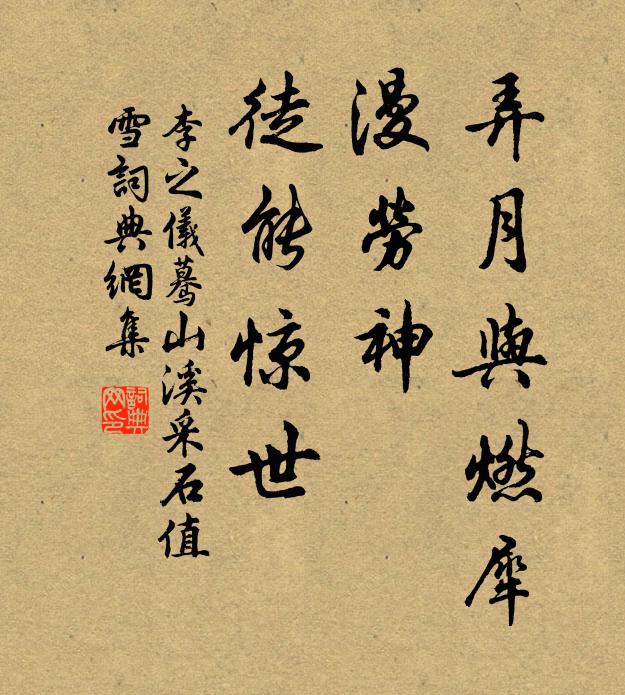 弄月與燃犀
漫勞神
徒能惊世
李之儀驀山溪采石值
雪詞典網集
詞典
网印